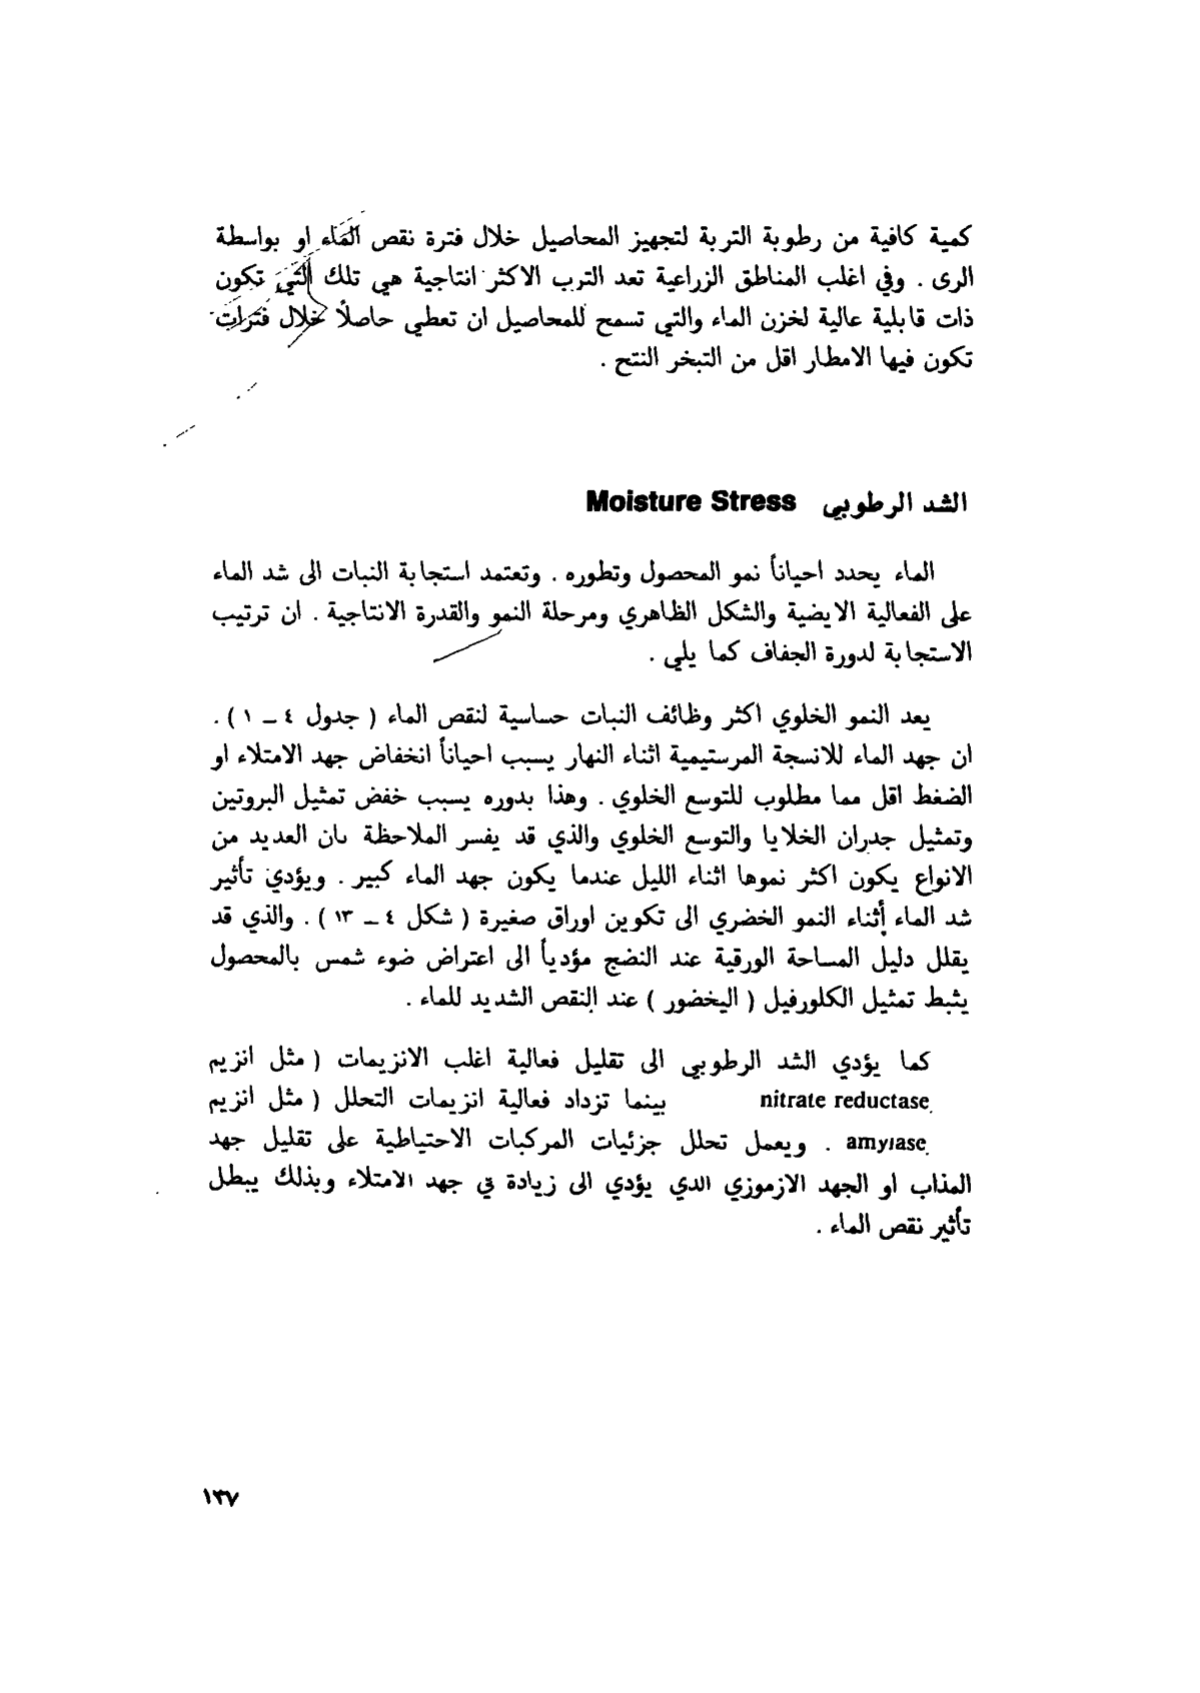 كمية كافية من رطوبة التربة لتجهيز المحاصيل خلال فترة نقص الماء او بواسطة
الرى . وفي اغلب المناطق الزراعية تعد الترب الاكثر انتاجية هي تلك التي تكون
ذات قابلية عالية لخزن الماء والتي تسمح للمحاصيل ان تعطي حاصلاً خلال فترات
تكون فيها الامطار اقل من التبخر النتح .
الشد الرطوبي Moisture Stress
الماء يحدد احياناً نمو المحصول وتطوره . وتعتمد استجابة النبات الى شد الماء
على الفعالية الايضية والشكل الظاهري ومرحلة النمو والقدرة الانتاجية . ان ترتيب
الاستجابة لدورة الجفاف كما يلي .
يعد النمو الخلوي اكثر وظائف النبات حساسية لنقص الماء ( جدول ٤ – ١ ) .
ان جهد الماء للانسجة المرستيمية اثناء النهار يسبب احياناً انخفاض جهد الامتلاء او
الضغط اقل مما مطلوب للتوسع الخلوي . وهذا بدوره يسبب خفض تمثيل البروتين
وتمثيل جدران الخلايا والتوسع الخلوي والذي قد يفسر الملاحظة بان العديد من
الانواع يكون اكثر نموها اثناء الليل عندما يكون جهد الماء كبير . ويؤدي تأثير
شد الماء أثناء النمو الخضري الى تكوين اوراق صغيرة ( شكل ٤ – ١٣ ) . والذي قد
يقلل دليل المساحة الورقية عند النضج مؤدياً الى اعتراض ضوء شمس بالمحصول
يثبط تمثيل الكلورفيل ( اليخضور ) عند النقص الشديد للماء .
كما يؤدي الشد الرطوبي الى تقليل فعالية اغلب الانزيمات ( مثل انزيم
nitrate reductase بينما تزداد فعالية انزيمات التحلل ( مثل انزيم
amylase . ويعمل تحلل جزئيات المركبات الاحتياطية على تقليل جهد
المذاب او الجهد الازموزي الذي يؤدي الى زيادة في جهد الامتلاء وبذلك يبطل
تأثير نقص الماء .
١٣٧